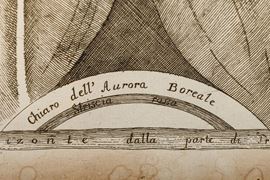 Chiaro dell'Aurora Boreale
Striscia fosca
izonte dalla parte di Tr